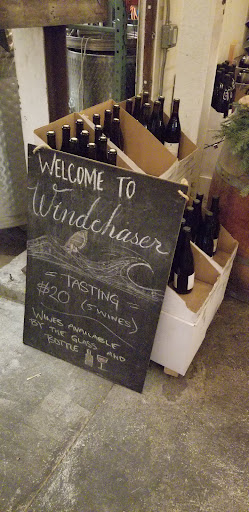 WELCOME TO
Windchaser
= TASTING =
$20 (5 WINES)
WINES AVAILABLE
BY THE GLASS AND
BOTTLE